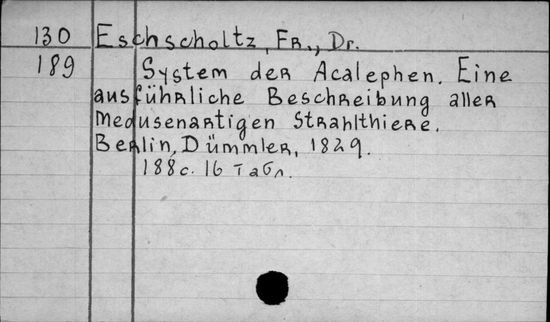 130 Eschscholtz, Fr., Dr.
189 System der Acalephen. Eine
ausführliche Beschreibung aller
medusenartigen Strahlthiere.
Berlin, Dümmler, 1829.
188 с. 16 табл.